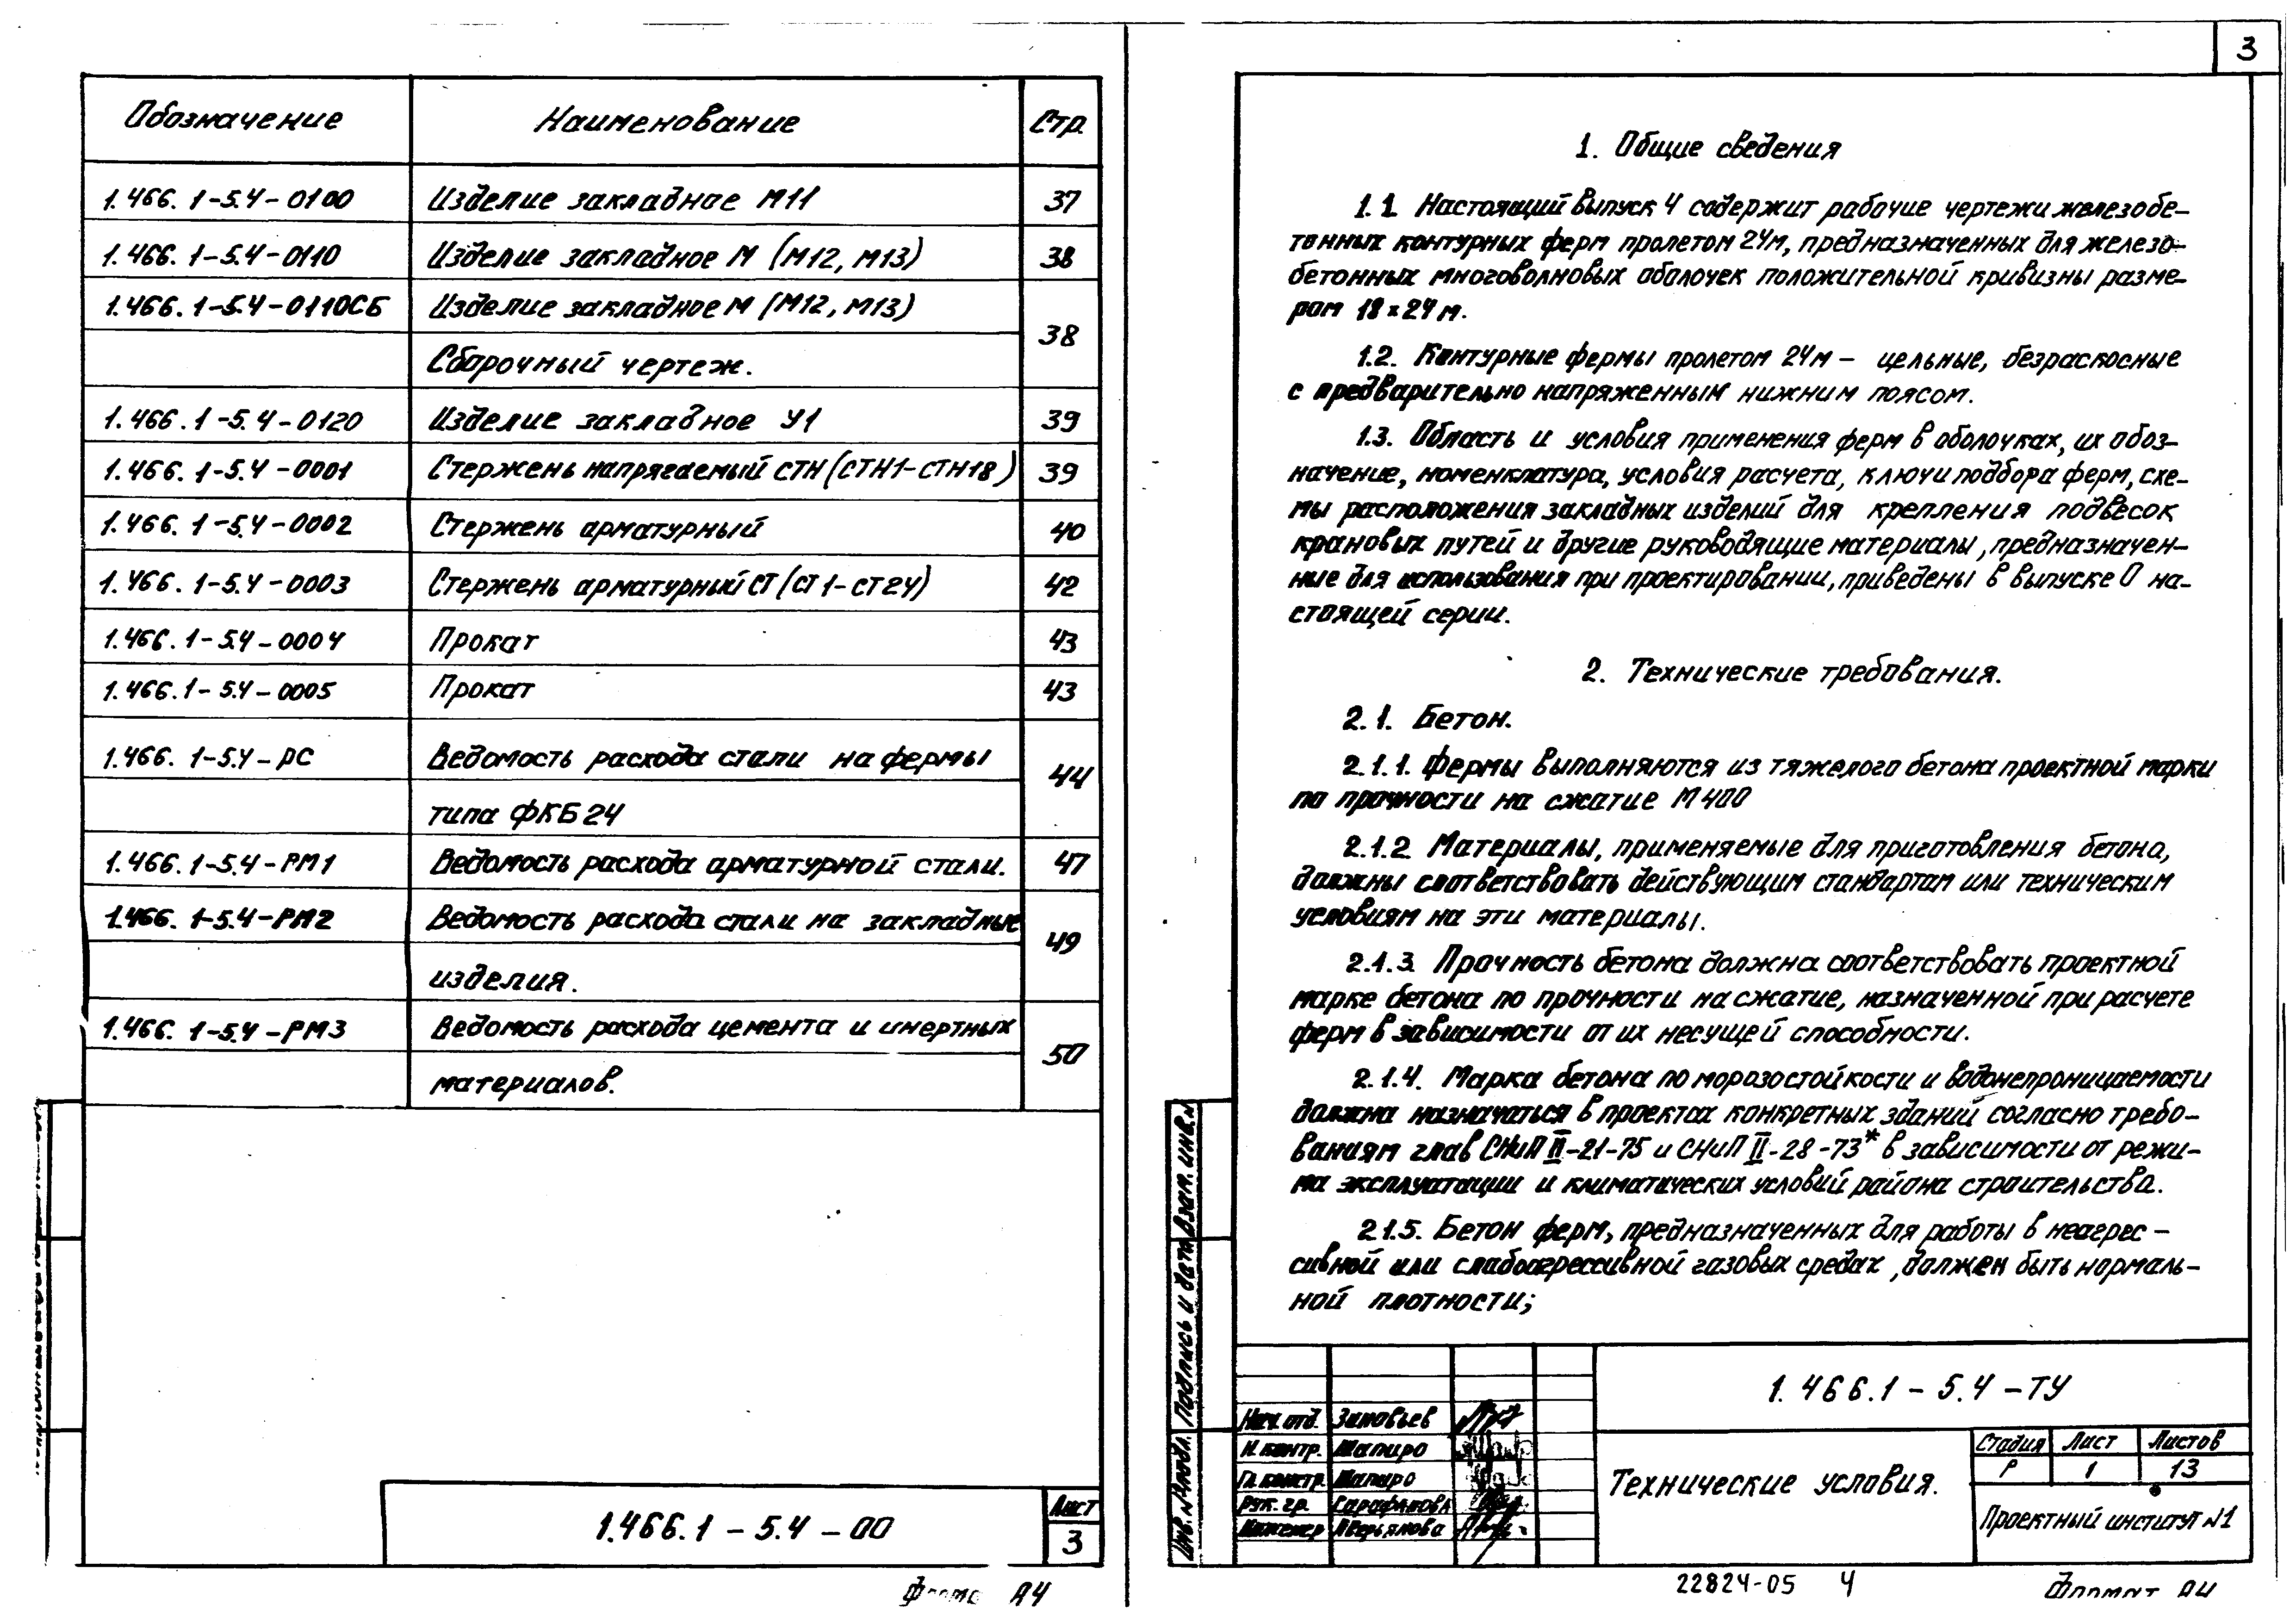 Обозначение Наименование Стр.
1.466.1-5.4-0100 Изделие закладное М11 37
1.466.1-5.4-0110 Изделие закладное М (М12, М13) 38
1.466.1-5.4-0110СБ Изделие закладное М (М12, М13)
Сборочный чертеж. 38
1.466.1-5.4-0120 Изделие закладное У1 39
1.466.1-5.4-0001 Стержень напрягаемый СТН (СТН1-СТН18) 39
1.466.1-5.4-0002 Стержень арматурный 40
1.466.1-5.4-0003 Стержень арматурный СТ (СТ1-СТ24) 42
1.466.1-5.4-0004 Прокат 43
1.466.1-5.4-0005 Прокат 43
1.466.1-5.4-РС Ведомость расхода стали на фермы
типа ФКБ24 44
1.466.1-5.4-РМ1 Ведомость расхода арматурной стали. 47
1.466.1-5.4-РМ2 Ведомость расхода стали на закладные
изделия. 49
1.466.1-5.4-РМ3 Ведомость расхода цемента и инертных
материалов. 50
1.466.1-5.4-00
Лист
3
А4
3
1. Общие сведения
1.1. Настоящий выпуск 4 содержит рабочие чертежи железобе-
тонных контурных ферм пролетом 24м, предназначенных для железо-
бетонных многоволновых оболочек положительной кривизны разме-
ром 18х24м.
1.2. Контурные фермы пролетом 24м - цельные, безраскосные
с предварительно напряженным нижним поясом.
1.3. Область и условия применения ферм в оболочках, их обоз-
начение, номенклатура, условия расчета, ключи подбора ферм, схе-
мы расположения закладных изделий для крепления подвесок
крановых путей и другие руководящие материалы, предназначен-
ные для использования при проектировании, приведены в выпуске 0 на-
стоящей серии.
2. Технические требования.
2.1. Бетон.
2.1.1. Фермы выполняются из тяжелого бетона проектной марки
по прочности на сжатие М400
2.1.2. Материалы, применяемые для приготовления бетона,
должны соответствовать действующим стандартам или техническим
условиям на эти материалы.
2.1.3. Прочность бетона должна соответствовать проектной
марке бетона по прочности на сжатие, назначенной при расчете
ферм в зависимости от их несущей способности.
2.1.4. Марка бетона по морозостойкости и водонепроницаемости
должна назначаться в проектах конкретных зданий согласно требо-
ваниям глав СНиП II-21-75 и СНиП II-28-73* в зависимости от режи-
ма эксплуатации и климатических условий района строительства.
2.1.5. Бетон ферм, предназначенных для работы в неагрес-
сивной или слабоагрессивной газовых средах, должен быть нормаль-
ной плотности;
Инв. № подл. Подпись и дата Взам. инв. №
1.466.1-5.4-ТУ
Нач. отд. Зиновьев
Н. контр. Шапиро
Гл. констр. Шапиро
Рук. гр. Сарафанова
Инженер Аверьянова
Технические условия.
Стадия Лист Листов
Р 1 13
Проектный институт №1
22824-05 4
Формат А4